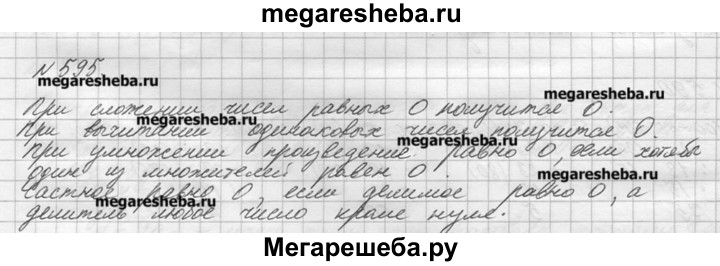 megaresheba.ru
№ 595
megaresheba.ru
При сложении чисел равных 0 получится 0.
megaresheba.ru
При вычитании одинаковых чисел получится 0.
megaresheba.ru
При умножении произведение равно 0, если хотябы
один из множителей равен 0.
megaresheba.ru
megaresheba.ru
Частное равно 0, если делимое равно 0, а
делитель любое число кроме нуля.
Мегарешеба.ру